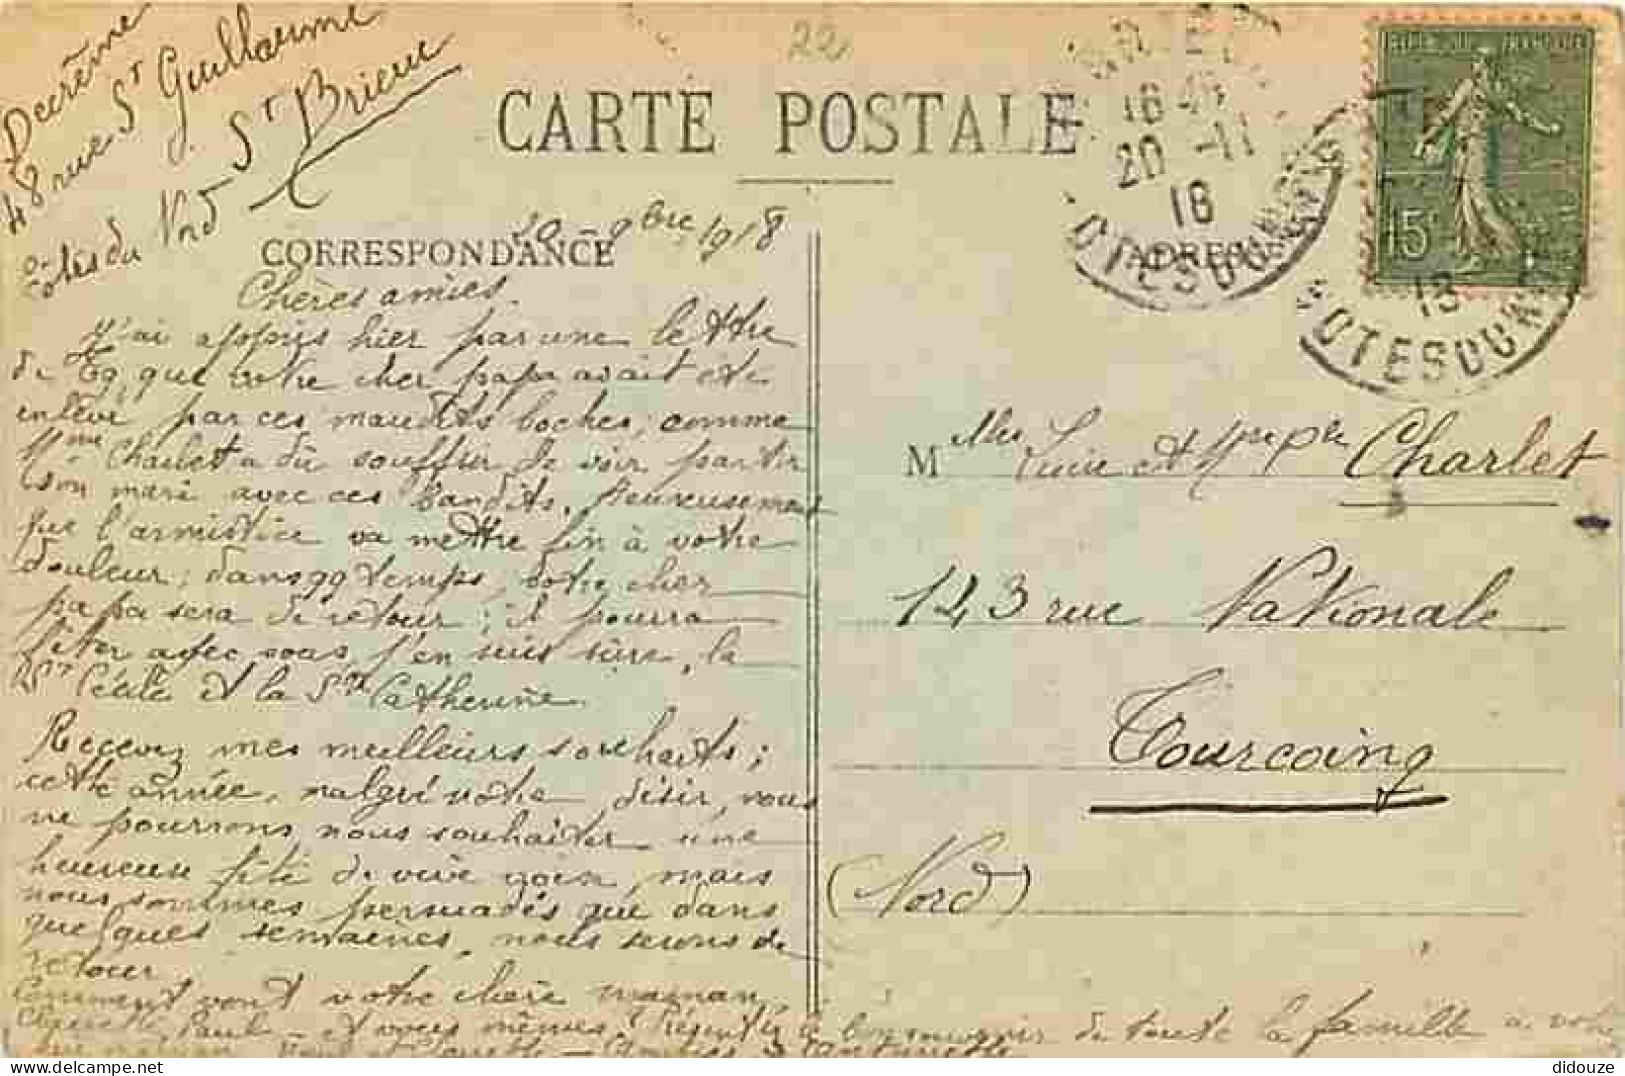 48 rue St Guillaume
St Brieuc
Côtes du Nord
22
CARTE POSTALE
16
20 -11
18
COTES DU N
18
COTES DU N
15c
CORRESPONDANCE
20 - 9bre 1918
ADRESSE
Chères amies.
J'ai appris hier par une lettre
de Tg, que votre cher papa avait été
enlevé par ces maudits boches; comme
Mme Charlet a dû souffrir de voir partir
son mari avec ces bandits. Heureusement
que l'armistice va mettre fin à votre
douleur; dans qq temps, votre cher
papa sera de retour; il pourra
fêter avec vous j'en suis sûre, la
Ste Cécile et la Ste Catherine.
Recevez mes meilleurs souhaits;
cette année, malgré notre désir, nous
ne pourrons nous souhaiter une
heureuse fête de vive voix, mais
nous sommes persuadés que dans
quelques semaines, nous serons de
retour.
Comment vont votre chère maman,
Paul - et vous mêmes. Présentez le bon souvenir de toute la famille à votre
maman
Melles et Charlet
143 rue Nationale
Tourcoing
(Nord)
didouze